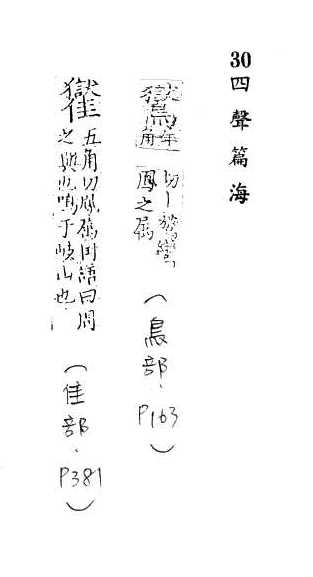 30四聲篇海
鸑牛角
切丨鷟鸞
鳳之屬
（鳥部．P163）
五角切鳳屬国語曰周
之興也鳴于岐山也
（隹部．P381）